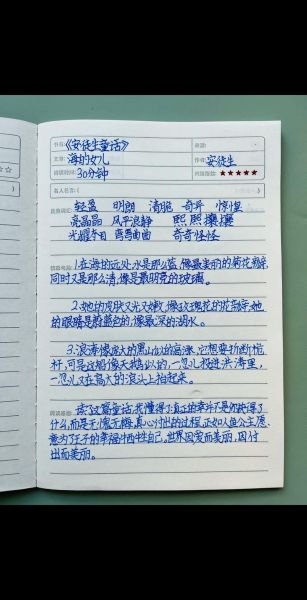 书名:《安徒生童话》
文章:海的女儿 作者:安徒生
阅读时间:30分钟 ★★★★★
名人名言:(
轻盈 明朗 清脆 奇异 惊惶
亮晶晶 风平浪静 熙熙攘攘
光耀夺目 弯弯曲曲 奇奇怪怪
1.在海的远处,水是那么蓝,像最美丽的矢车菊花瓣,
同时又是那么清,像是最明亮的玻璃。
2.她的皮肤又光又嫩,像玫瑰花的花瓣,她
的眼睛是蔚蓝色的,像最深的湖水。
3.浪涛像庞大的黑山似的高涨,它想要折断桅
杆,可是这船像天鹅似的,一忽儿投进洪涛里,
一忽儿又在高大的浪头上抬起来。
阅读感悟: 读了这篇童话,我懂得了:真正的幸福不是你获得了
什么,而是无悔真心付出的过程,正如人鱼公主愿
意为了王子的幸福牺牲自己。世界因爱而美丽,因付
出而美丽。